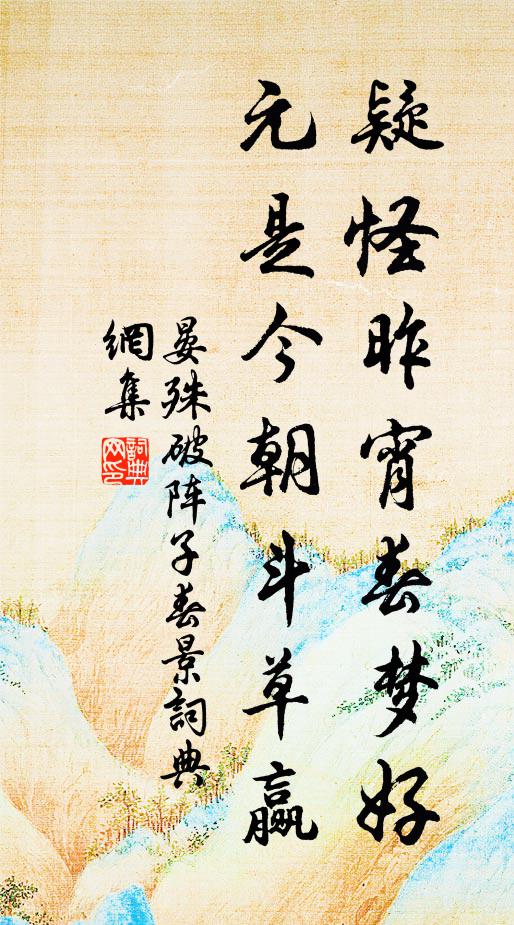 疑怪昨宵春梦好
元是今朝斗草赢
晏殊破阵子春景詞典
網集
詞典网印